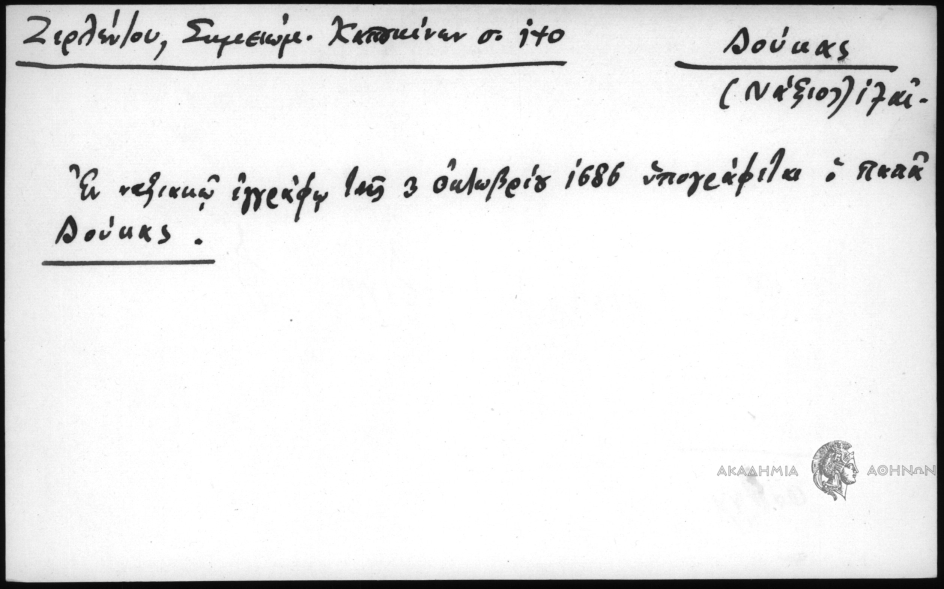 Ζερλέντου, Σημειώμ. Καπουκίνων σ. 140
Δούκας
(Νάξιος)
Ἐν ναξιακῷ ἐγγράφῳ τῆς 3 Ὀκτωβρίου 1686 ὑπογράφεται ὁ παπᾶ
Δούκας.
ΑΚΑΔΗΜΙΑ ΑΘΗΝΩΝ